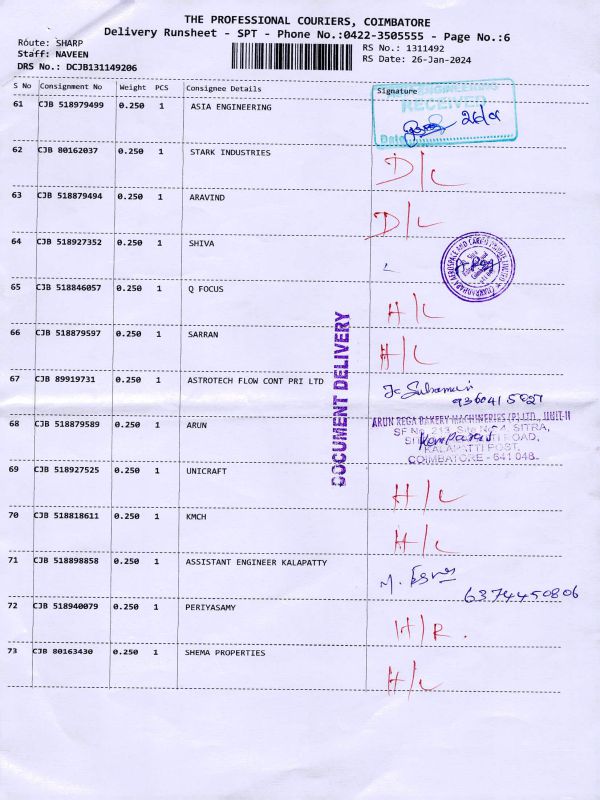 THE PROFESSIONAL COURIERS, COIMBATORE
Delivery Runsheet - SPT - Phone No.:0422-3505555 - Page No.:6
Route: SHARP
Staff: NAVEEN
DRS No.: DCJB131149206
RS No.: 1311492
RS Date: 26-Jan-2024
S No Consignment No Weight PCS Consignee Details Signature
61 CJB 518979499 0.250 1 ASIA ENGINEERING
ENGINEERING
RECEIVED
Date
62 CJB 80162037 0.250 1 STARK INDUSTRIES D/L
63 CJB 518879494 0.250 1 ARAVIND D/L
64 CJB 518927352 0.250 1 SHIVA
65 CJB 518846057 0.250 1 Q FOCUS H/L
66 CJB 518879597 0.250 1 SARRAN H/L
67 CJB 89919731 0.250 1 ASTROTECH FLOW CONT PRI LTD
DOCUMENT DELIVERY
68 CJB 518879589 0.250 1 ARUN
ARUN REGA BAKERY MACHINERIES (P) LTD., UNIT-II
SF No. 213, Site No 4, SITRA,
ROAD,
KALAPATTI POST,
COIMBATORE - 641 048.
69 CJB 518927525 0.250 1 UNICRAFT H/L
70 CJB 518818611 0.250 1 KMCH H/L
71 CJB 518898858 0.250 1 ASSISTANT ENGINEER KALAPATTY
6374450806
72 CJB 518940079 0.250 1 PERIYASAMY H/R.
73 CJB 80163430 0.250 1 SHEMA PROPERTIES H/L